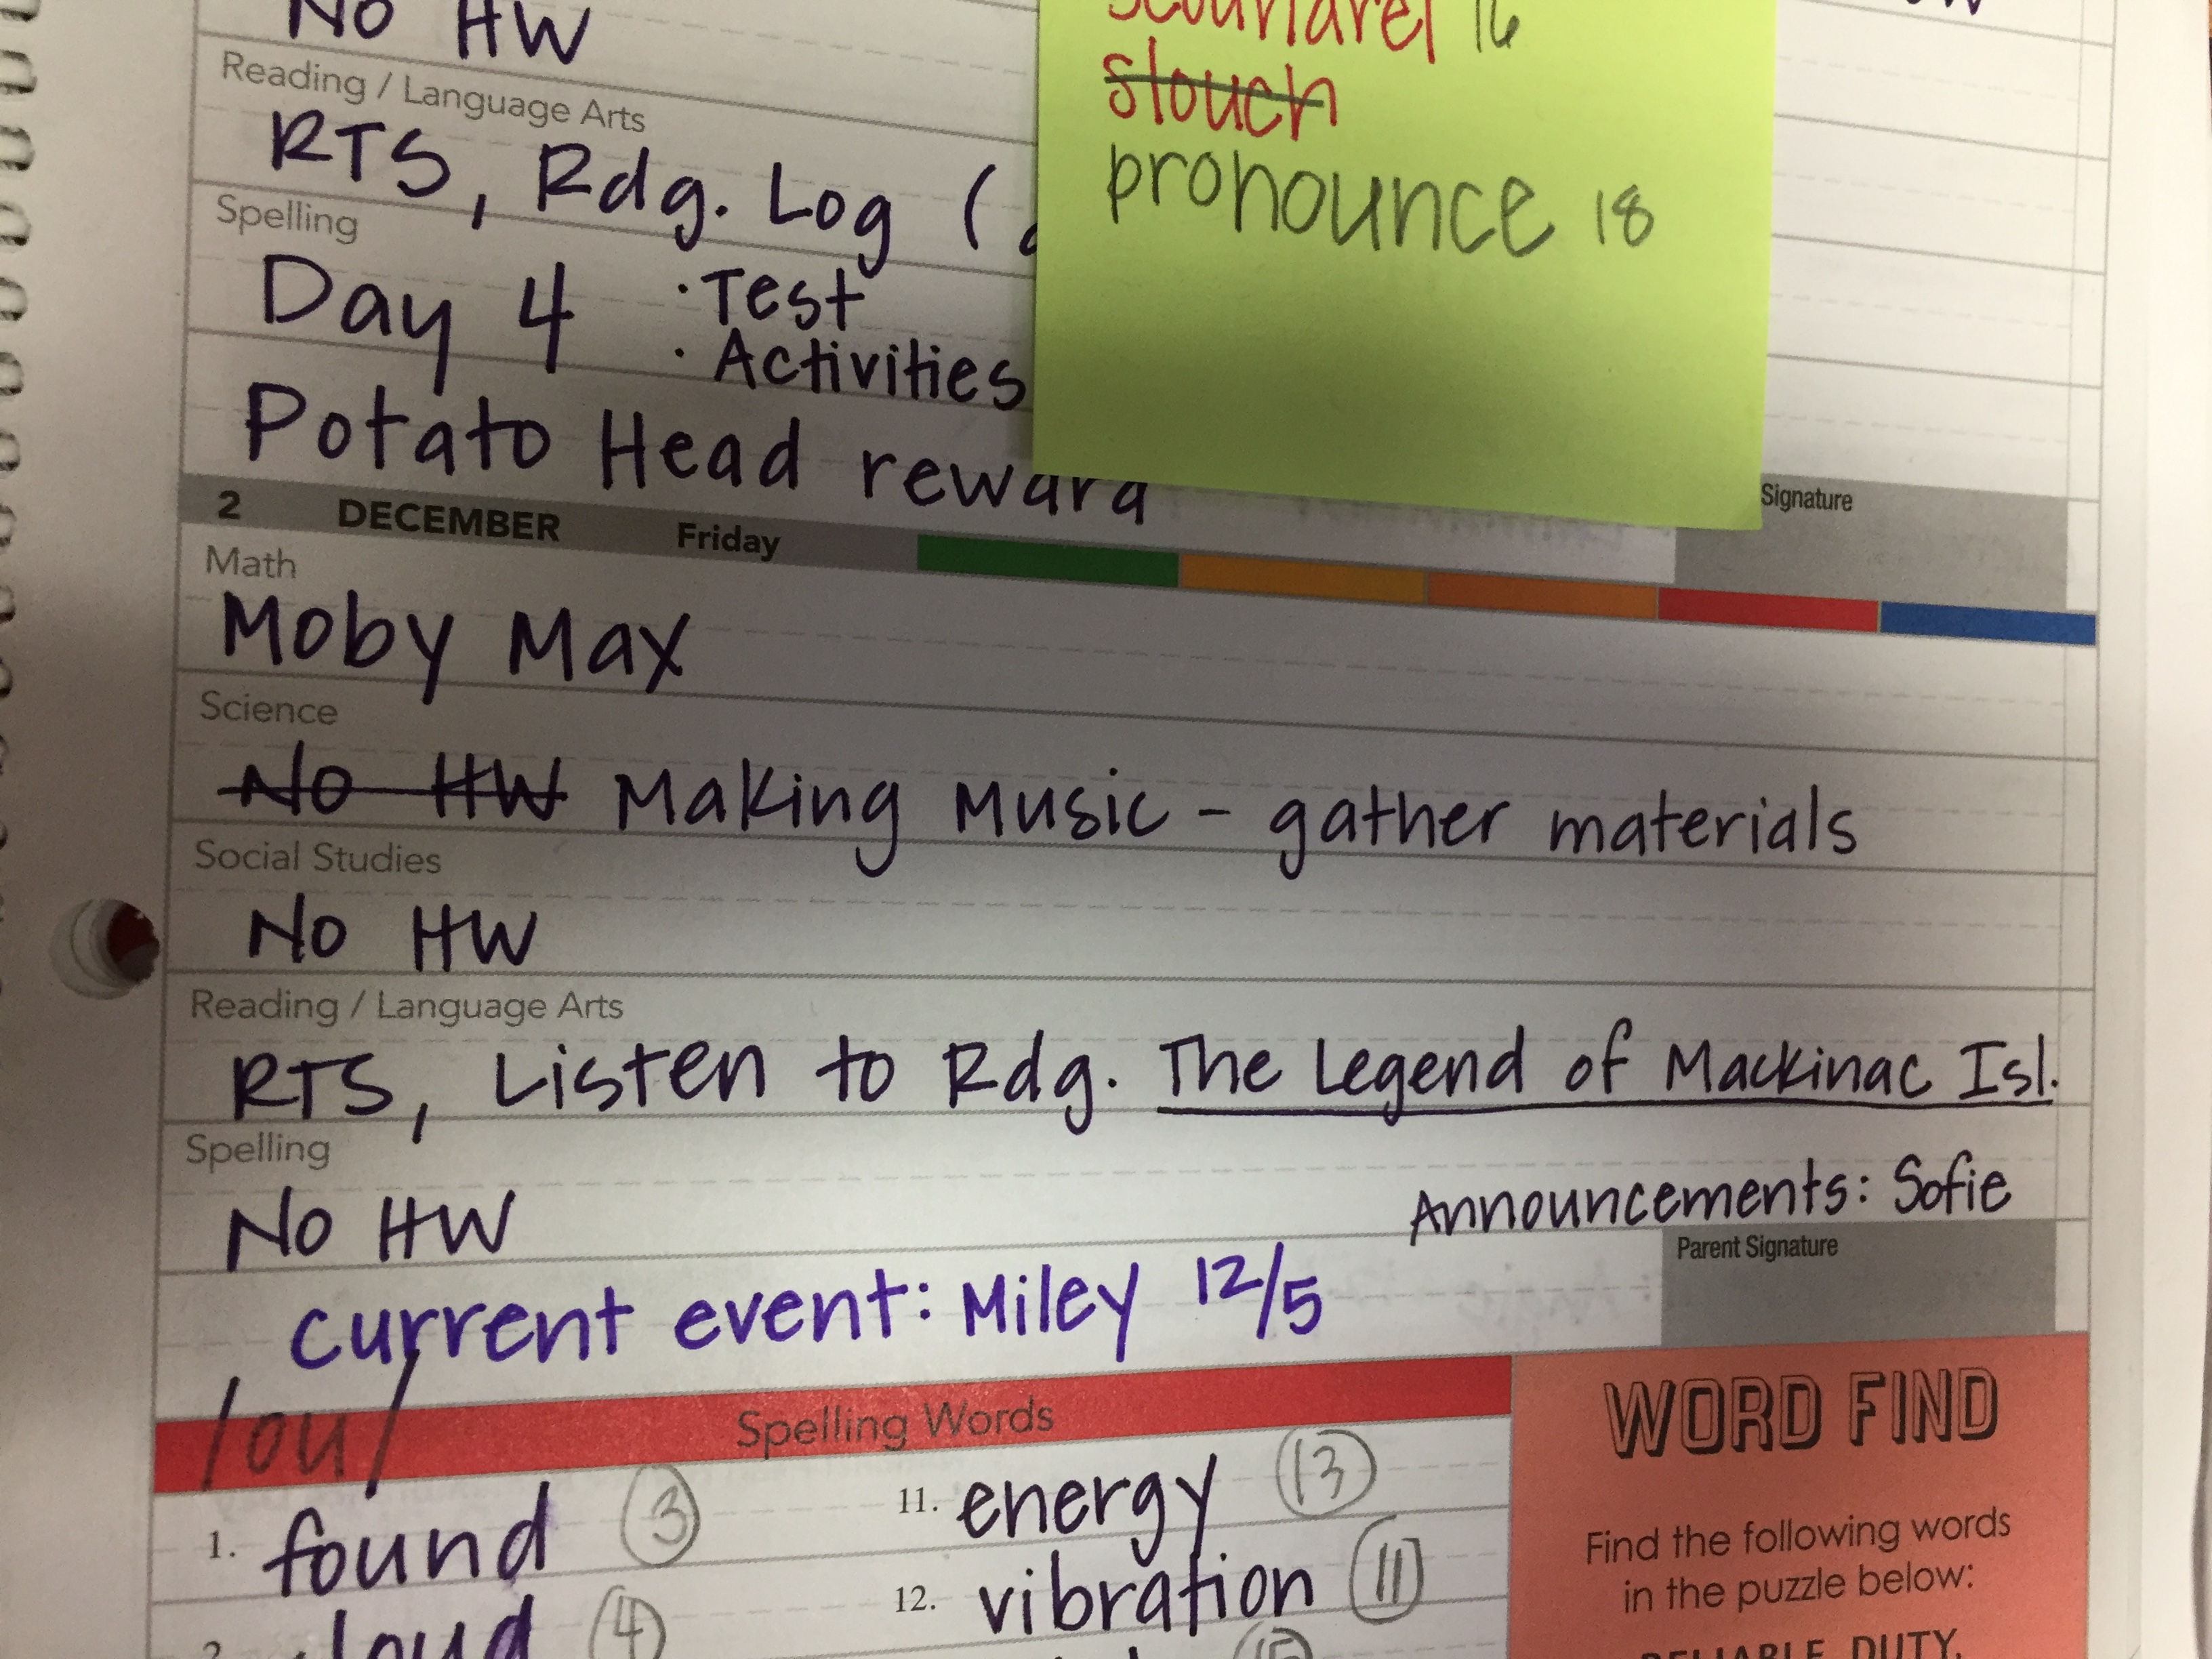 No HW
Reading / Language Arts
RTS, Rdg. Log (
Spelling
Day 4 · Test
· Activities
Potato Head reward
scoundrel 16
slouch
pronounce 18
Signature
2 DECEMBER Friday
Math
Moby Max
Science
No HW Making Music - gather materials
Social Studies
No HW
Reading / Language Arts
RTS, Listen to Rdg. The Legend of Mackinac Isl.
Spelling
No HW
Announcements: Sofie
Parent Signature
current event: Miley 12/5
/ou/
Spelling Words
1. found 3
2. loud 4
11. energy 13
12. vibration 11
WORD FIND
Find the following words
in the puzzle below:
RELIABLE, DUTY,